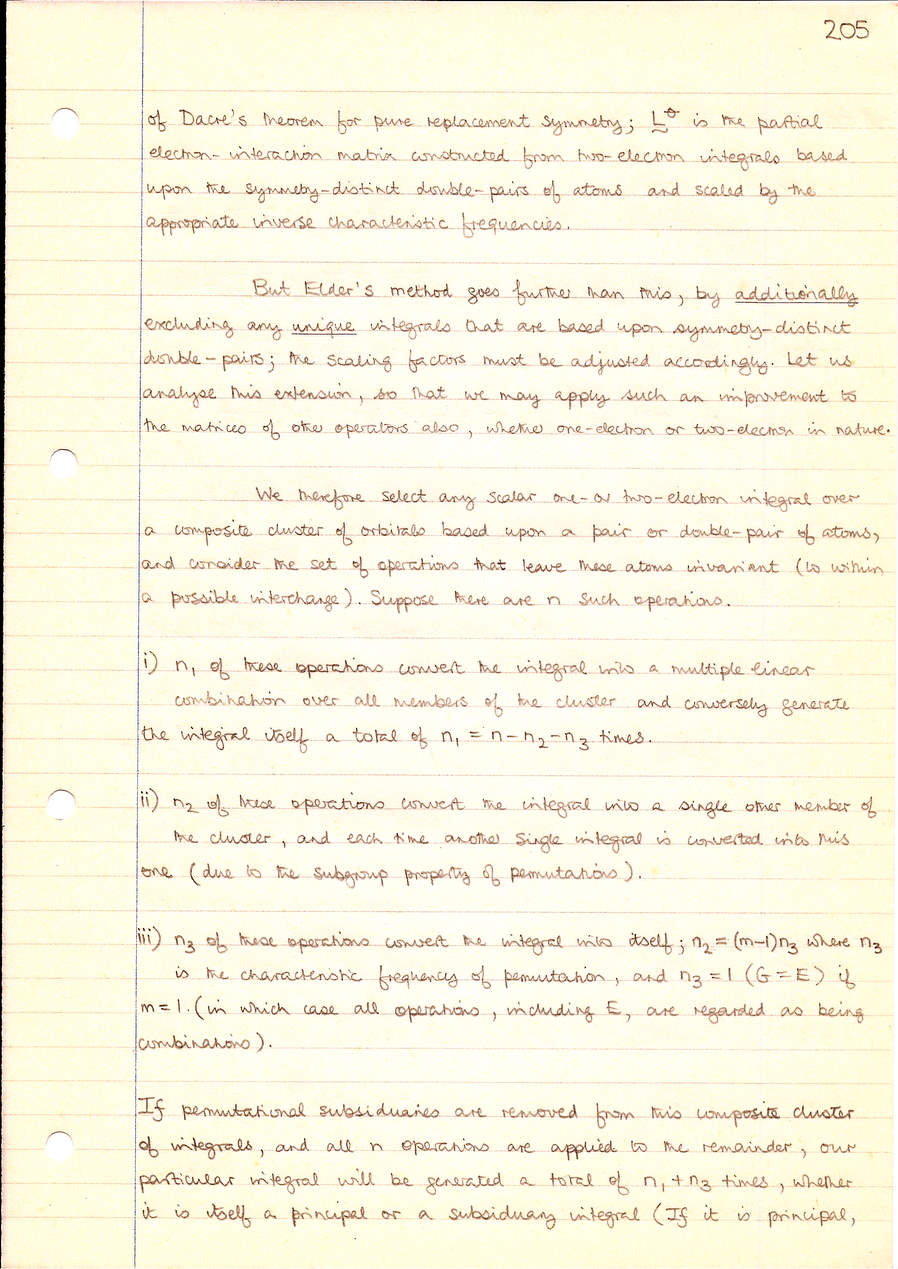 205
of Dacre's theorem for pure replacement symmetry; L^θ is the partial
electron-interaction matrix constructed from two-electron integrals based
upon the symmetry-distinct double-pairs of atoms and scaled by the
appropriate inverse characteristic frequencies.
But Elder's method goes further than this, by additionally
excluding any unique integrals that are based upon symmetry-distinct
double-pairs; the scaling factors must be adjusted accordingly. Let us
analyse this extension, so that we may apply such an improvement to
the matrices of other operators also, whether one-electron or two-electron in nature.
We therefore select any scalar one- or two-electron integral over
a composite cluster of orbitals based upon a pair or double-pair of atoms,
and consider the set of operations that leave these atoms invariant (to within
a possible interchange). Suppose there are n such operations.
i) n₁ of these operations convert the integral into a multiple linear
combination over all members of the cluster and conversely generate
the integral itself a total of n₁ = n-n₂-n₃ times.
ii) n₂ of these operations convert the integral into a single other member of
the cluster, and each time another single integral is converted into this
one (due to the subgroup property of permutations).
iii) n₃ of these operations convert the integral into itself; n₂ = (m-1)n₃ where n₃
is the characteristic frequency of permutation, and n₃ = 1 (G = E) if
m = 1. (in which case all operations, including E, are regarded as being
combinations).
If permutational subsiduaries are removed from this composite cluster
of integrals, and all n operations are applied to the remainder, our
particular integral will be generated a total of n₁ + n₃ times, whether
it is itself a principal or a subsiduary integral (If it is principal,